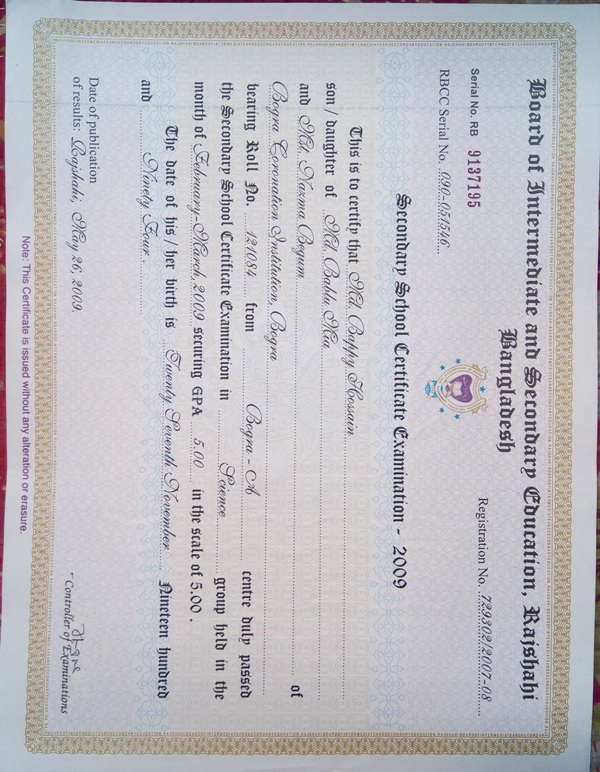 Board of Intermediate and Secondary Education, Rajshahi
Bangladesh
Serial No. RB 9137195
RBCC Serial No. 090-051546
Registration No. 729302/2007-08
Secondary School Certificate Examination - 2009
This is to certify that Md. Bappy Hossain
son / daughter of Md. Bablu Mia
and Mst. Nazma Begum of
Bogra Coronation Institution, Bogra
bearing Roll No. 121084 from Bogra - A centre duly passed
the Secondary School Certificate Examination in Science group held in the
month of February-March, 2009 securing GPA 5.00 in the scale of 5.00 .
The date of his / her birth is Twenty Seventh November Nineteen hundred
and Ninety Four .
Date of publication
of results: Rajshahi, May 26, 2009.
Controller of Examinations
Note: This Certificate is issued without any alteration or erasure.